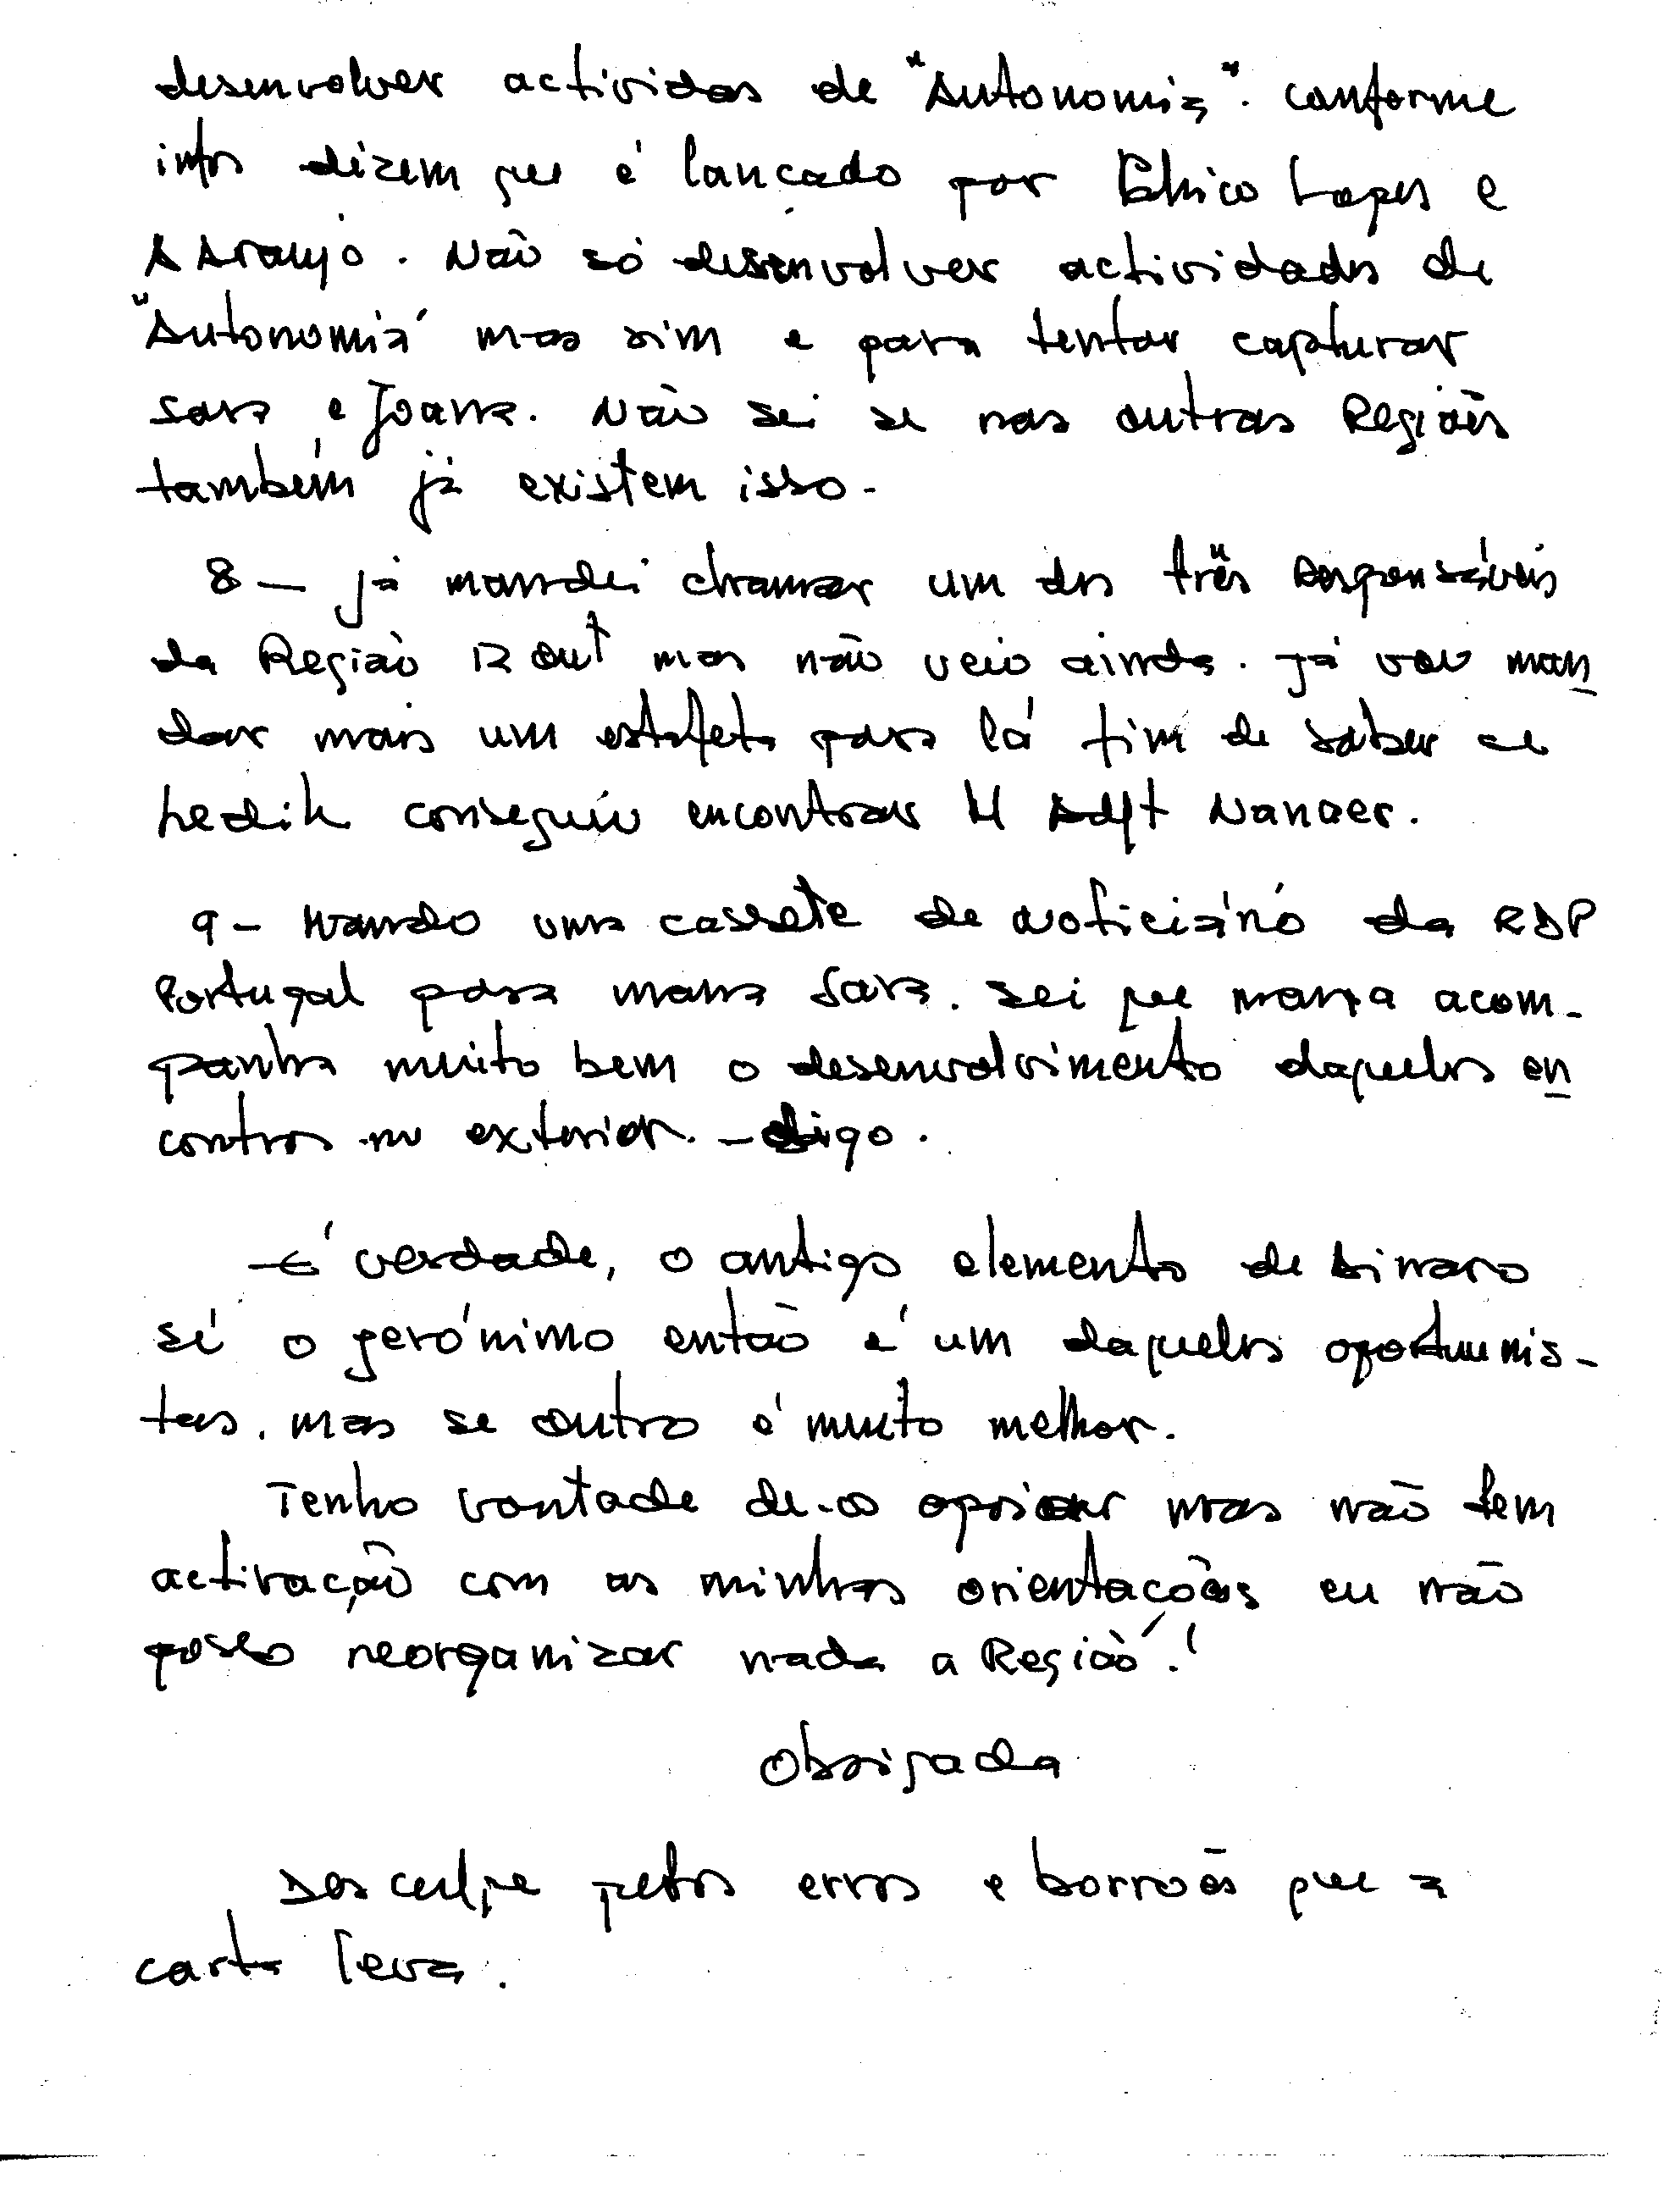 desenvolver actividas de "Autonomia". conforme
infs dizem que é lançado por Chico Lopes e
A Araujo. Não só desenvolver actividades de
"Autonomia" mas sim e para tentar capturar
Sara e Joana. Não sei se nas outras Regiões
também já existem isso-
8 — já mandei chamar um dos três Responsáveis
da Região 12 Out mas não veio ainda. já vou man
dar mais um estafeta para lá fim de saber se
Ledik conseguiu encontrar H Adjt Nanaer.
9 - Mando uma cassete de noticiário da RDP
Portugal para mana Sara. sei que mana acom-
panha muito bem o desenvolvimento daqueles en
contros no exterior. - digo.
- É verdade, o antigo elemento de Ainaro
sé o gerónimo então é um daqueles oportunis-
tas. mas se outro é muito melhor.
Tenho vontade de-os apoiar mas não tem
activação com as minhas orientações eu não
posso reorganizar nada a Região!
Obrigada
Desculpe pelos erros e borrões que a
carta leva.